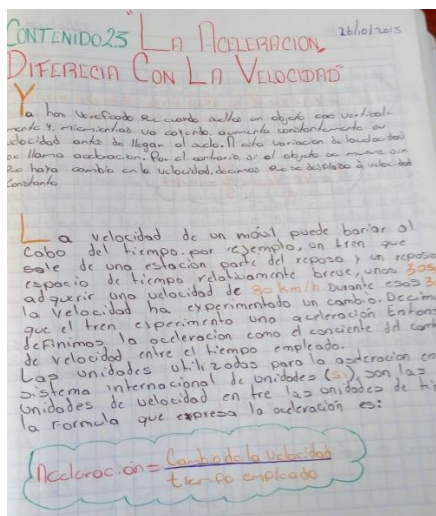 CONTENIDO 25 "LA ACELERACION,
26/10/2015
DIFERECIA CON LA VELOCIDAD"
Ya han Verificado que cuando un objeto cae vertical-
mente y, mientras va cayendo, aumenta constantemente su
velocidad antes de llegar al A esta variacion de la velocidad
se llama aceleracion. Por el contrario, si el objeto se mueve sin
que haya cambio en la velocidad, decimos que se desplaza a velocidad
constante
La velocidad de un móvil puede bariar al
cabo del tiempo. por ejemplo, un tren que
sale de una estación parte del reposo y un reposo
espacio de tiempo relativamente breve, unos 30s
adquerir una velocidad de 80 km/h Durante esos 30
la velocidad ha experimentado un cambio. Decimo
que el tren experimento una aceleración Enton
definimos la aceleracion como el conciente del cam
de velocidad, entre el tiempo empleado.
Las unidades utilizadas para la aceleracion en
sistema internacional de unidades (si), son las
unidades de velocidad en tre las unidades de ti
la Formula que expresa la aceleración es:
Aceleración = Cambio de la velocidad
tiempo empleado